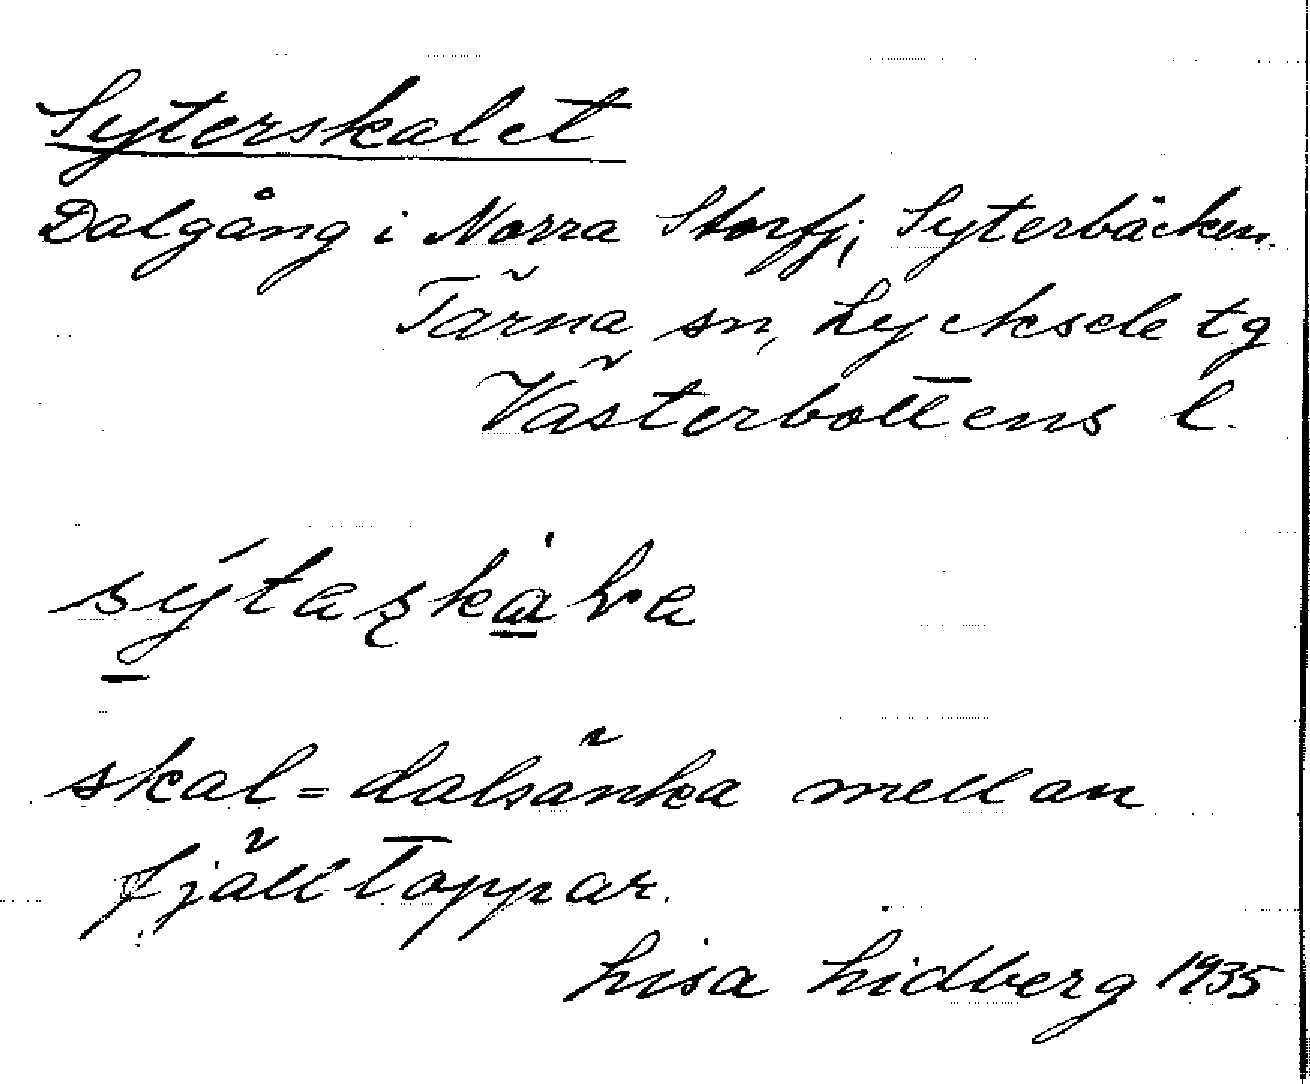 Syterskalet
Dalgång i Norra Storfj, Syterbäcken.
Tärna sn, Lycksele tg
Västerbottens l.
skal = dalsänka mellan
fjälltoppar.
Lisa Lidberg 1935